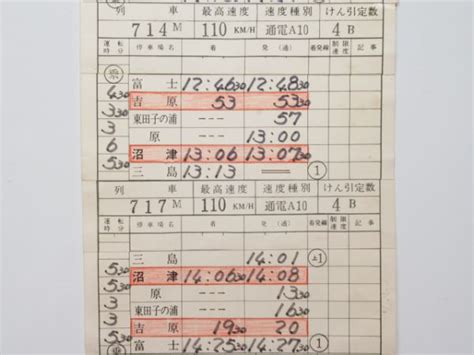 列車 最高速度 速度種別 けん引定数
714M 110KM/H 通電A10 4B
運転時分 停車場名 着 発(通) 着発線 制限速度 記事
富士 12:46 30 12:48 30
4 30 吉原 53 53 30
3 東田子の浦 57
3 原 --- 13:00
6 沼津 13:06 13:07 30
5 30 三島 13:13 ═ ①
列車 最高速度 速度種別 けん引定数
717M 110KM/H 通電A10 4B
運転時分 停車場名 着 発(通) 着発線 制限速度 記事
三島 14:01
5 30 沼津 14:06 30 14:08
5 30 原 --- 13 30
3 東田子の浦 --- 16 30
3 吉原 19 30 20
5 30 富士 14:25 30 14:27 30 ①